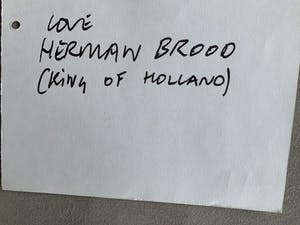 LOVE
HERMAN BROOD
(KING OF HOLLAND)